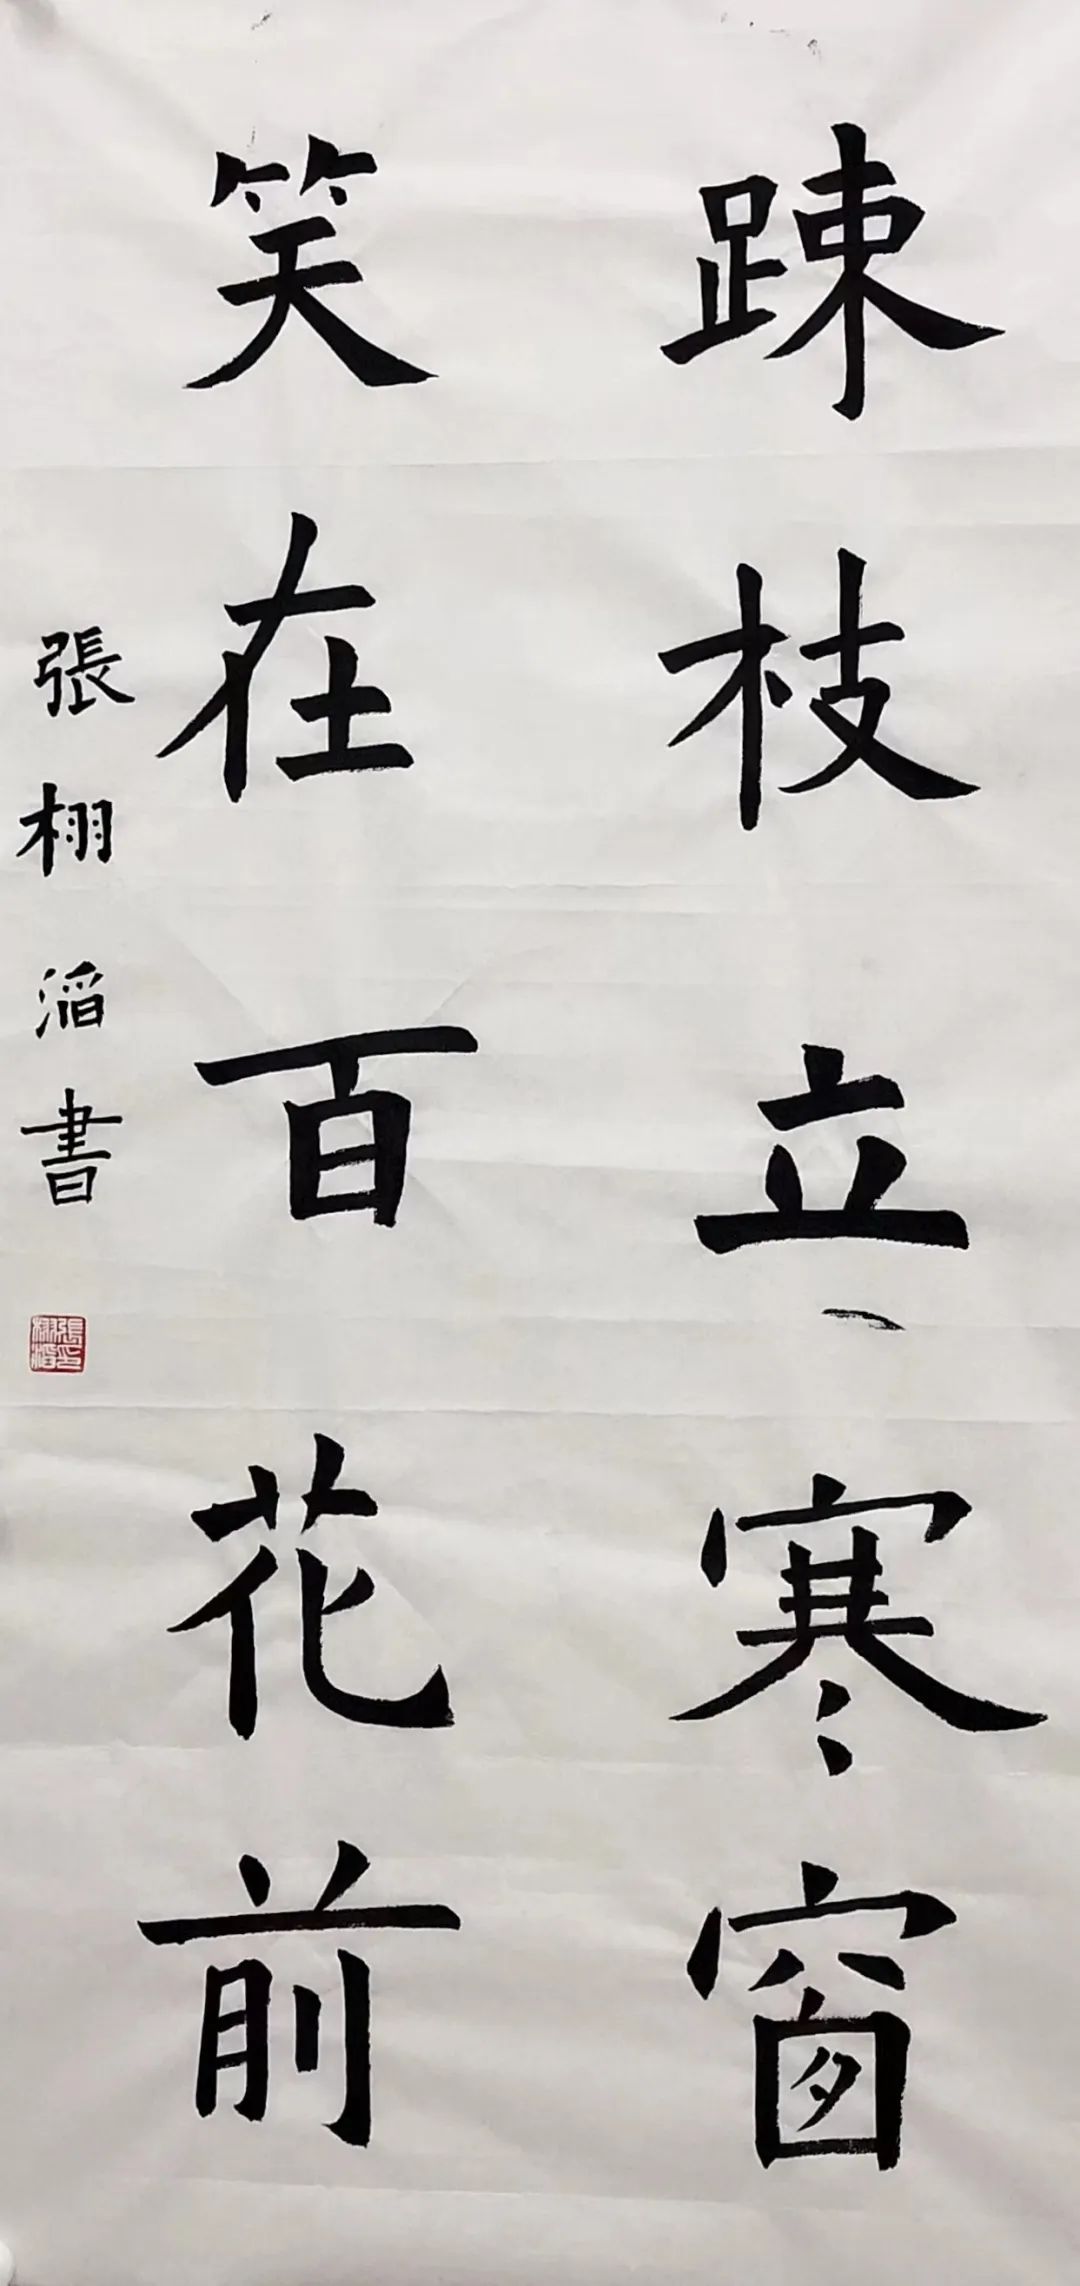 踈枝立寒窗
笑在百花前
張栩滔書
張栩滔印